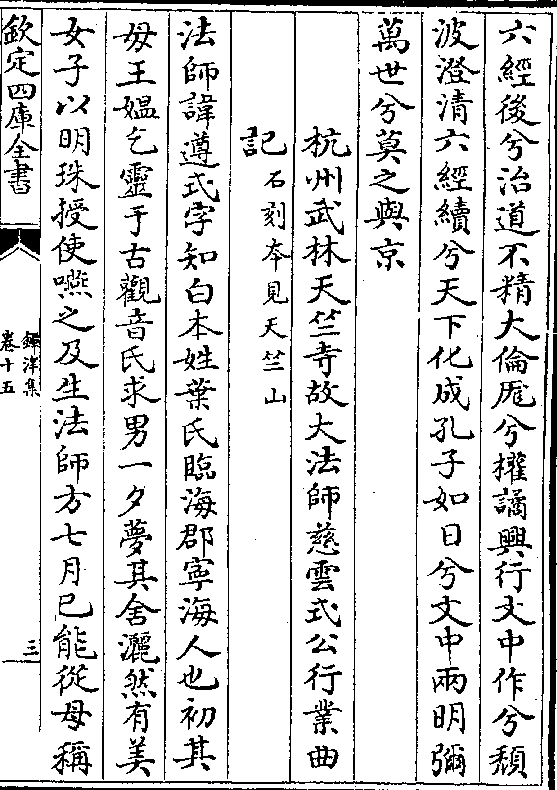 六經後兮治道不精大倫厖兮權譎興行文中作兮頽
波澄清六經續兮天下化成孔子如日兮文中兩明彌
萬世兮莫之與京
杭州武林天竺寺故大法師慈雲式公行業曲
記石刻本見天竺山
法師諱遵式字知白本姓葉氏臨海郡寧海人也初其
母王媪乞靈于古觀音氏求男一夕夢其舍灑然有美
女子以明珠授使嚥之及生法師方七月已能從母稱
欽定四庫全書
鐔津集
卷十五
三